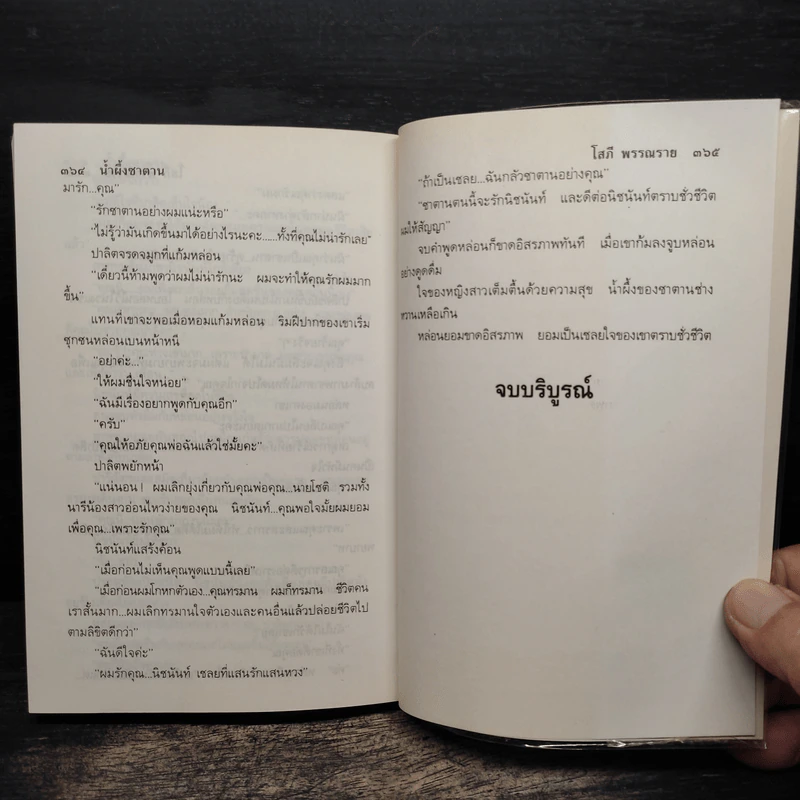 ๓๖๔ น้ำผึ้งซาตาน
มารัก...คุณ"
"รักซาตานอย่างผมแน่ะหรือ"
"ไม่รู้ว่ามันเกิดขึ้นมาได้อย่างไรนะคะ......ทั้งที่คุณไม่น่ารักเลย"
ปาลิตจรดจมูกที่แก้มหล่อน
"เดี๋ยวนี้ห้ามพูดว่าผมไม่น่ารักนะ ผมจะทำให้คุณรักผมมาก
ขึ้น"
แทนที่เขาจะพอเมื่อหอมแก้มหล่อน ริมฝีปากของเขาเริ่ม
ซุกซนหล่อนเบนหน้าหนี
"อย่าค่ะ..."
"ให้ผมชื่นใจหน่อย"
"ฉันมีเรื่องอยากพูดกับคุณอีก"
"ครับ"
"คุณให้อภัยคุณพ่อฉันแล้วใช่มั้ยคะ"
ปาลิตพยักหน้า
"แน่นอน! ผมเลิกยุ่งเกี่ยวกับคุณพ่อคุณ...นายโชติ รวมทั้ง
นารีน้องสาวอ่อนไหวง่ายของคุณ นิชนันท์...คุณพอใจมั้ยผมยอม
เพื่อคุณ...เพราะรักคุณ"
นิชนันท์แสร้งค้อน
"เมื่อก่อนไม่เห็นคุณพูดแบบนี้เลย"
"เมื่อก่อนผมโกหกตัวเอง...คุณทรมาน ผมก็ทรมาน ชีวิตคน
เราสั้นมาก...ผมเลิกทรมานใจตัวเองและคนอื่นแล้วปล่อยชีวิตไป
ตามลิขิตดีกว่า"
"ฉันดีใจค่ะ"
"ผมรักคุณ...นิชนันท์ เชลยที่แสนรักแสนหวง"
โสภี พรรณราย ๓๖๕
"ถ้าเป็นเชลย...ฉันกลัวซาตานอย่างคุณ"
"ซาตานตนนี้จะรักนิชนันท์ และดีต่อนิชนันท์ตราบชั่วชีวิต
ผมให้สัญญา"
จบคำพูดหล่อนก็ขาดอิสรภาพทันที เมื่อเขาก้มลงจูบหล่อน
อย่างดูดดื่ม
ใจของหญิงสาวเต็มตื้นด้วยความสุข น้ำผึ้งของซาตานช่าง
หวานเหลือเกิน
หล่อนยอมขาดอิสรภาพ ยอมเป็นเชลยใจของเขาตราบชั่วชีวิต
จบบริบูรณ์